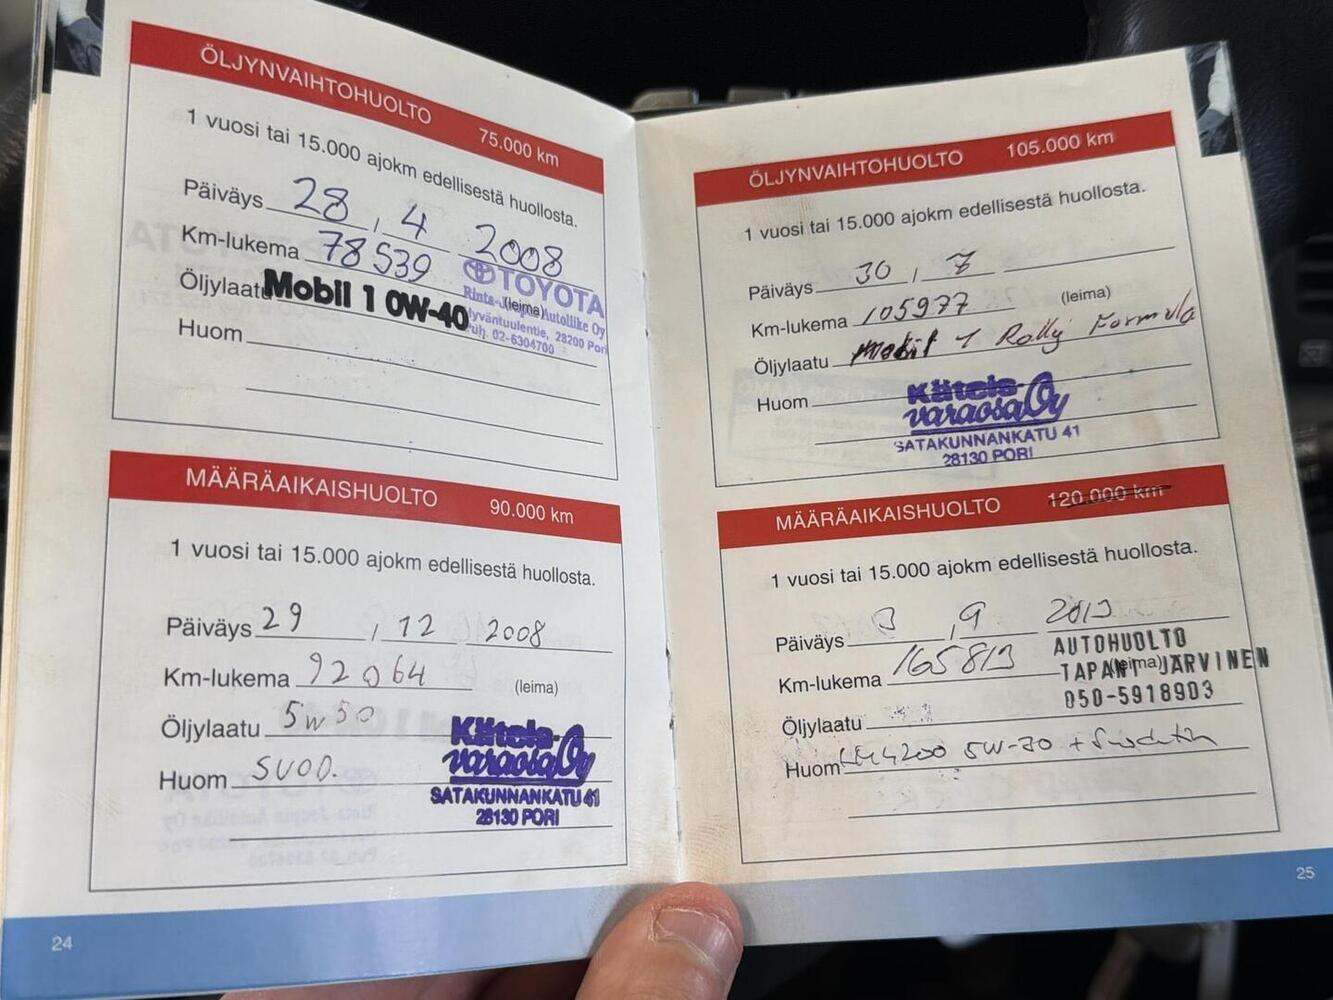 ÖLJYNVAIHTOHUOLTO 75.000 km
1 vuosi tai 15.000 ajokm edellisestä huollosta.
Päiväys 28 , 4 2008
Km-lukema 78539
TOYOTA
Öljylaatu Mobil 1 0W-40 (leima) Autoliike Oy
28200 Pori
Puh. 02-6304700
Huom
MÄÄRÄAIKAISHUOLTO 90.000 km
1 vuosi tai 15.000 ajokm edellisestä huollosta.
Päiväys 29 , 12 2008
Km-lukema 92064 (leima)
Öljylaatu 5W50
Huom SUOD.
Kiitola
varaosa Oy
SATAKUNNANKATU 41
28130 PORI
24
ÖLJYNVAIHTOHUOLTO 105.000 km
1 vuosi tai 15.000 ajokm edellisestä huollosta.
Päiväys 30 , 7
Km-lukema 105977 (leima)
Öljylaatu Mobil 1 Rally Formula
Huom
varaosa Oy
SATAKUNNANKATU 41
28130 PORI
MÄÄRÄAIKAISHUOLTO 120.000 km
1 vuosi tai 15.000 ajokm edellisestä huollosta.
Päiväys 3 , 9 2013
Km-lukema 165813
AUTOHUOLTO
TAPANI JÄRVINEN
(leima)
050-5918903
Öljylaatu
Huom 5W-30 + Suodatin
25